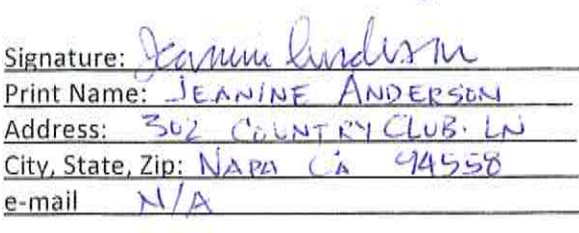 Signature: Jeanine Anderson
Print Name: JEANINE ANDERSON
Address: 302 COUNTRY CLUB. LN
City, State, Zip: NAPA CA 94558
e-mail N/A